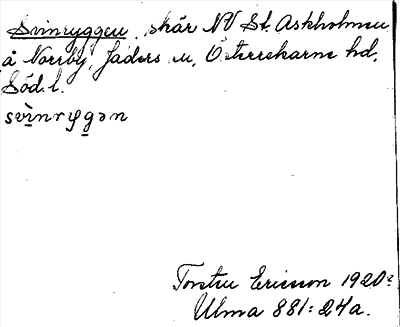 Svinryggen, skär NV St. Askholmen
å Norrby, Jäders sn, Österrekarne hd,
Söd. l.
svìnryგən
Torsten Ericsson 1920
Ulma 881:24a.